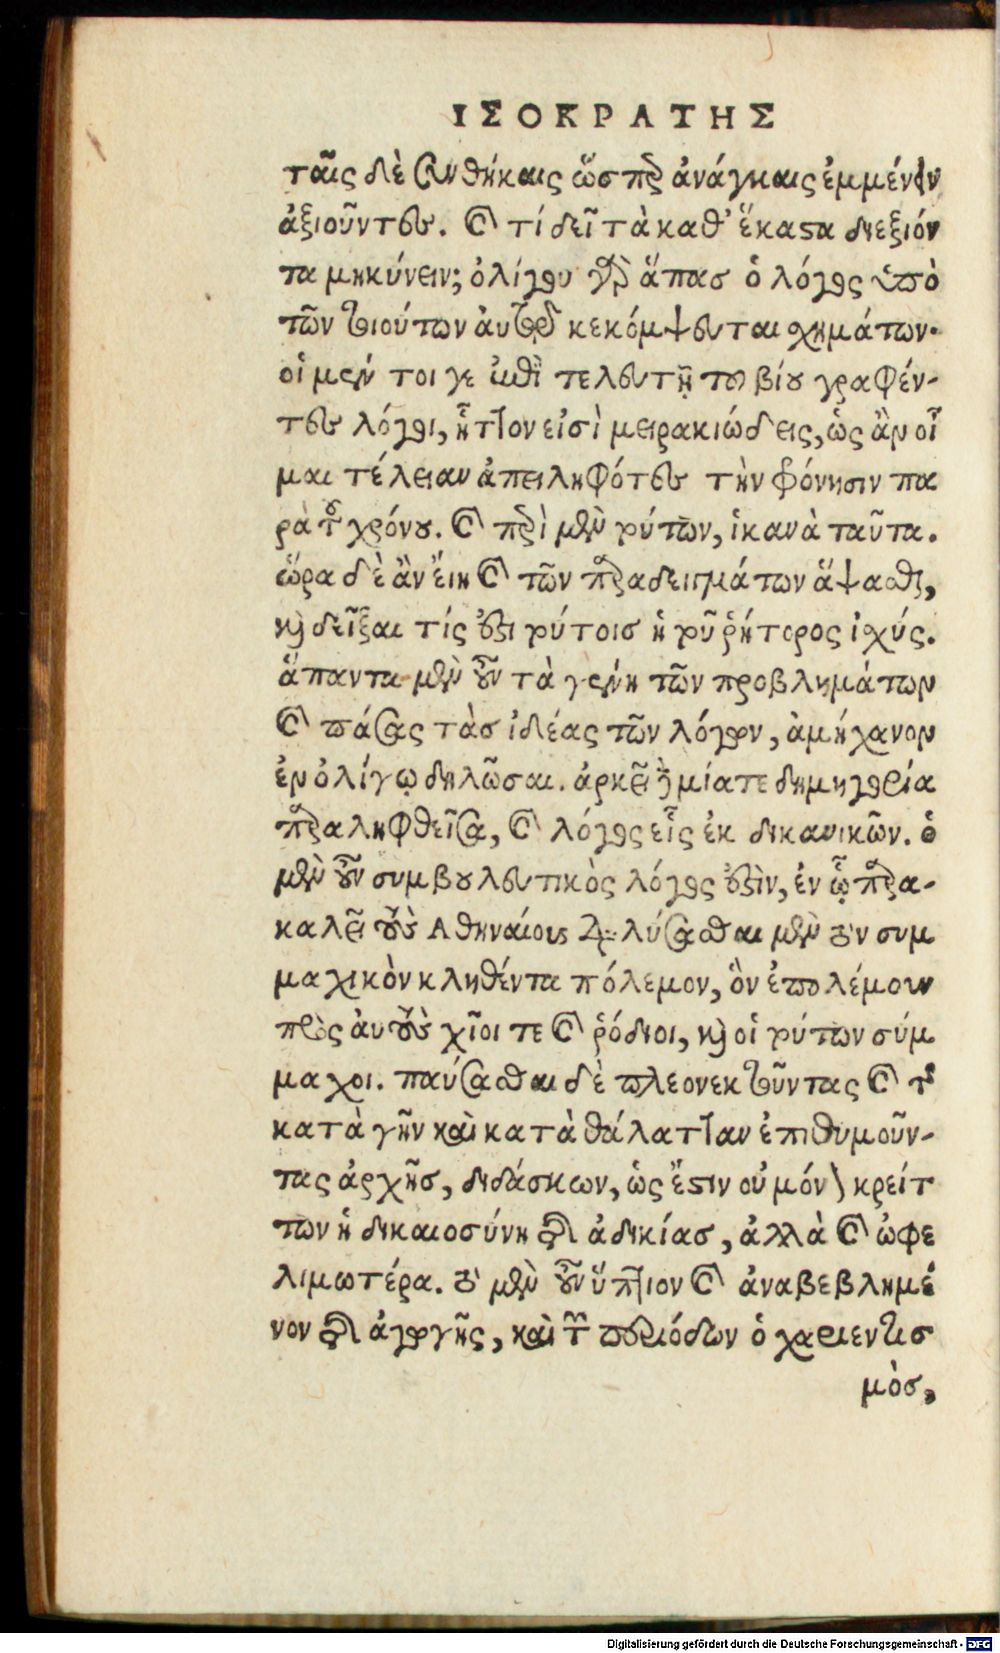 ΙΣΟΚΡΑΤΗΣ
ταῖς δὲ συνθήκαις ὥσπερ ἀνάγκαις ἐμμένειν
ἀξιοῦντες. καὶ τί δεῖ τὰ καθ' ἕκαστα διεξιόν
τα μηκύνειν; ὀλίγου γὰρ ἅπασ ὁ λόγος ὑπὸ
τῶν τοιούτων ἀυτῷ κεκόμψευται σχημάτων.
οἱ μέν τοι γε ἐπὶ τελευτῇ τοῦ βίου γραφέν-
τες λόγοι, ἧττον εἰσὶ μειρακιώδεις, ὡς ἂν οἶ
μαι τέλειαν ἀπειληφότες τὴν φρόνησιν πα
ρὰ τοῦ χρόνου. καὶ περὶ μὲν τούτων, ἱκανὰ ταῦτα.
ὥρα δὲ ἂν ἔιη καὶ τῶν παραδειγμάτων ἅψασθαι,
καὶ δεῖξαι τίς ἐστι τούτοισ ἡ τοῦ ῥήτορος ἰσχύς.
ἅπαντα μὲν οὖν τὰ γένη τῶν προβλημάτων
καὶ πάσας τὰσ ἰδέας τῶν λόγων, ἀμήχανον
ἐν ὀλίγῳ δηλῶσαι. ἀρκεῖ δὲ μία τε δημηγορία
παραληφθεῖσα, καὶ λόγος εἷς ἐκ δικανικῶν. ὁ
μὲν οὖν συμβουλευτικὸς λόγος ἐστὶν, ἐν ᾧ παρα-
καλεῖ τοὺς Αθηναίους διαλύσασθαι μὲν τὸν συμ
μαχικὸν κληθέντα πόλεμον, ὃν ἐπολέμουν
πρὸς ἀυτοὺς χῖοι τε καὶ ῥόδιοι, καὶ οἱ τούτων σύμ
μαχοι. παύσασθαι δὲ πλεονεκτοῦντας καὶ τῆς
κατὰ γῆν καὶ κατὰ θάλατταν ἐπιθυμοῦν-
τας ἀρχῆσ, διδάσκων, ὡς ἔστιν οὐ μόνον κρείτ
των ἡ δικαιοσύνη τῆς ἀδικίασ, ἀλλὰ καὶ ὠφε
λιμωτέρα. τὸ μὲν οὖν ὕπτιον καὶ ἀναβεβλημέ
νον τῆς ἀγωγῆς, καὶ τῶν περιόδων ὁ χαριεντισ
μὸσ,
Digitalisierung gefördert durch die Deutsche Forschungsgemeinschaft - DFG